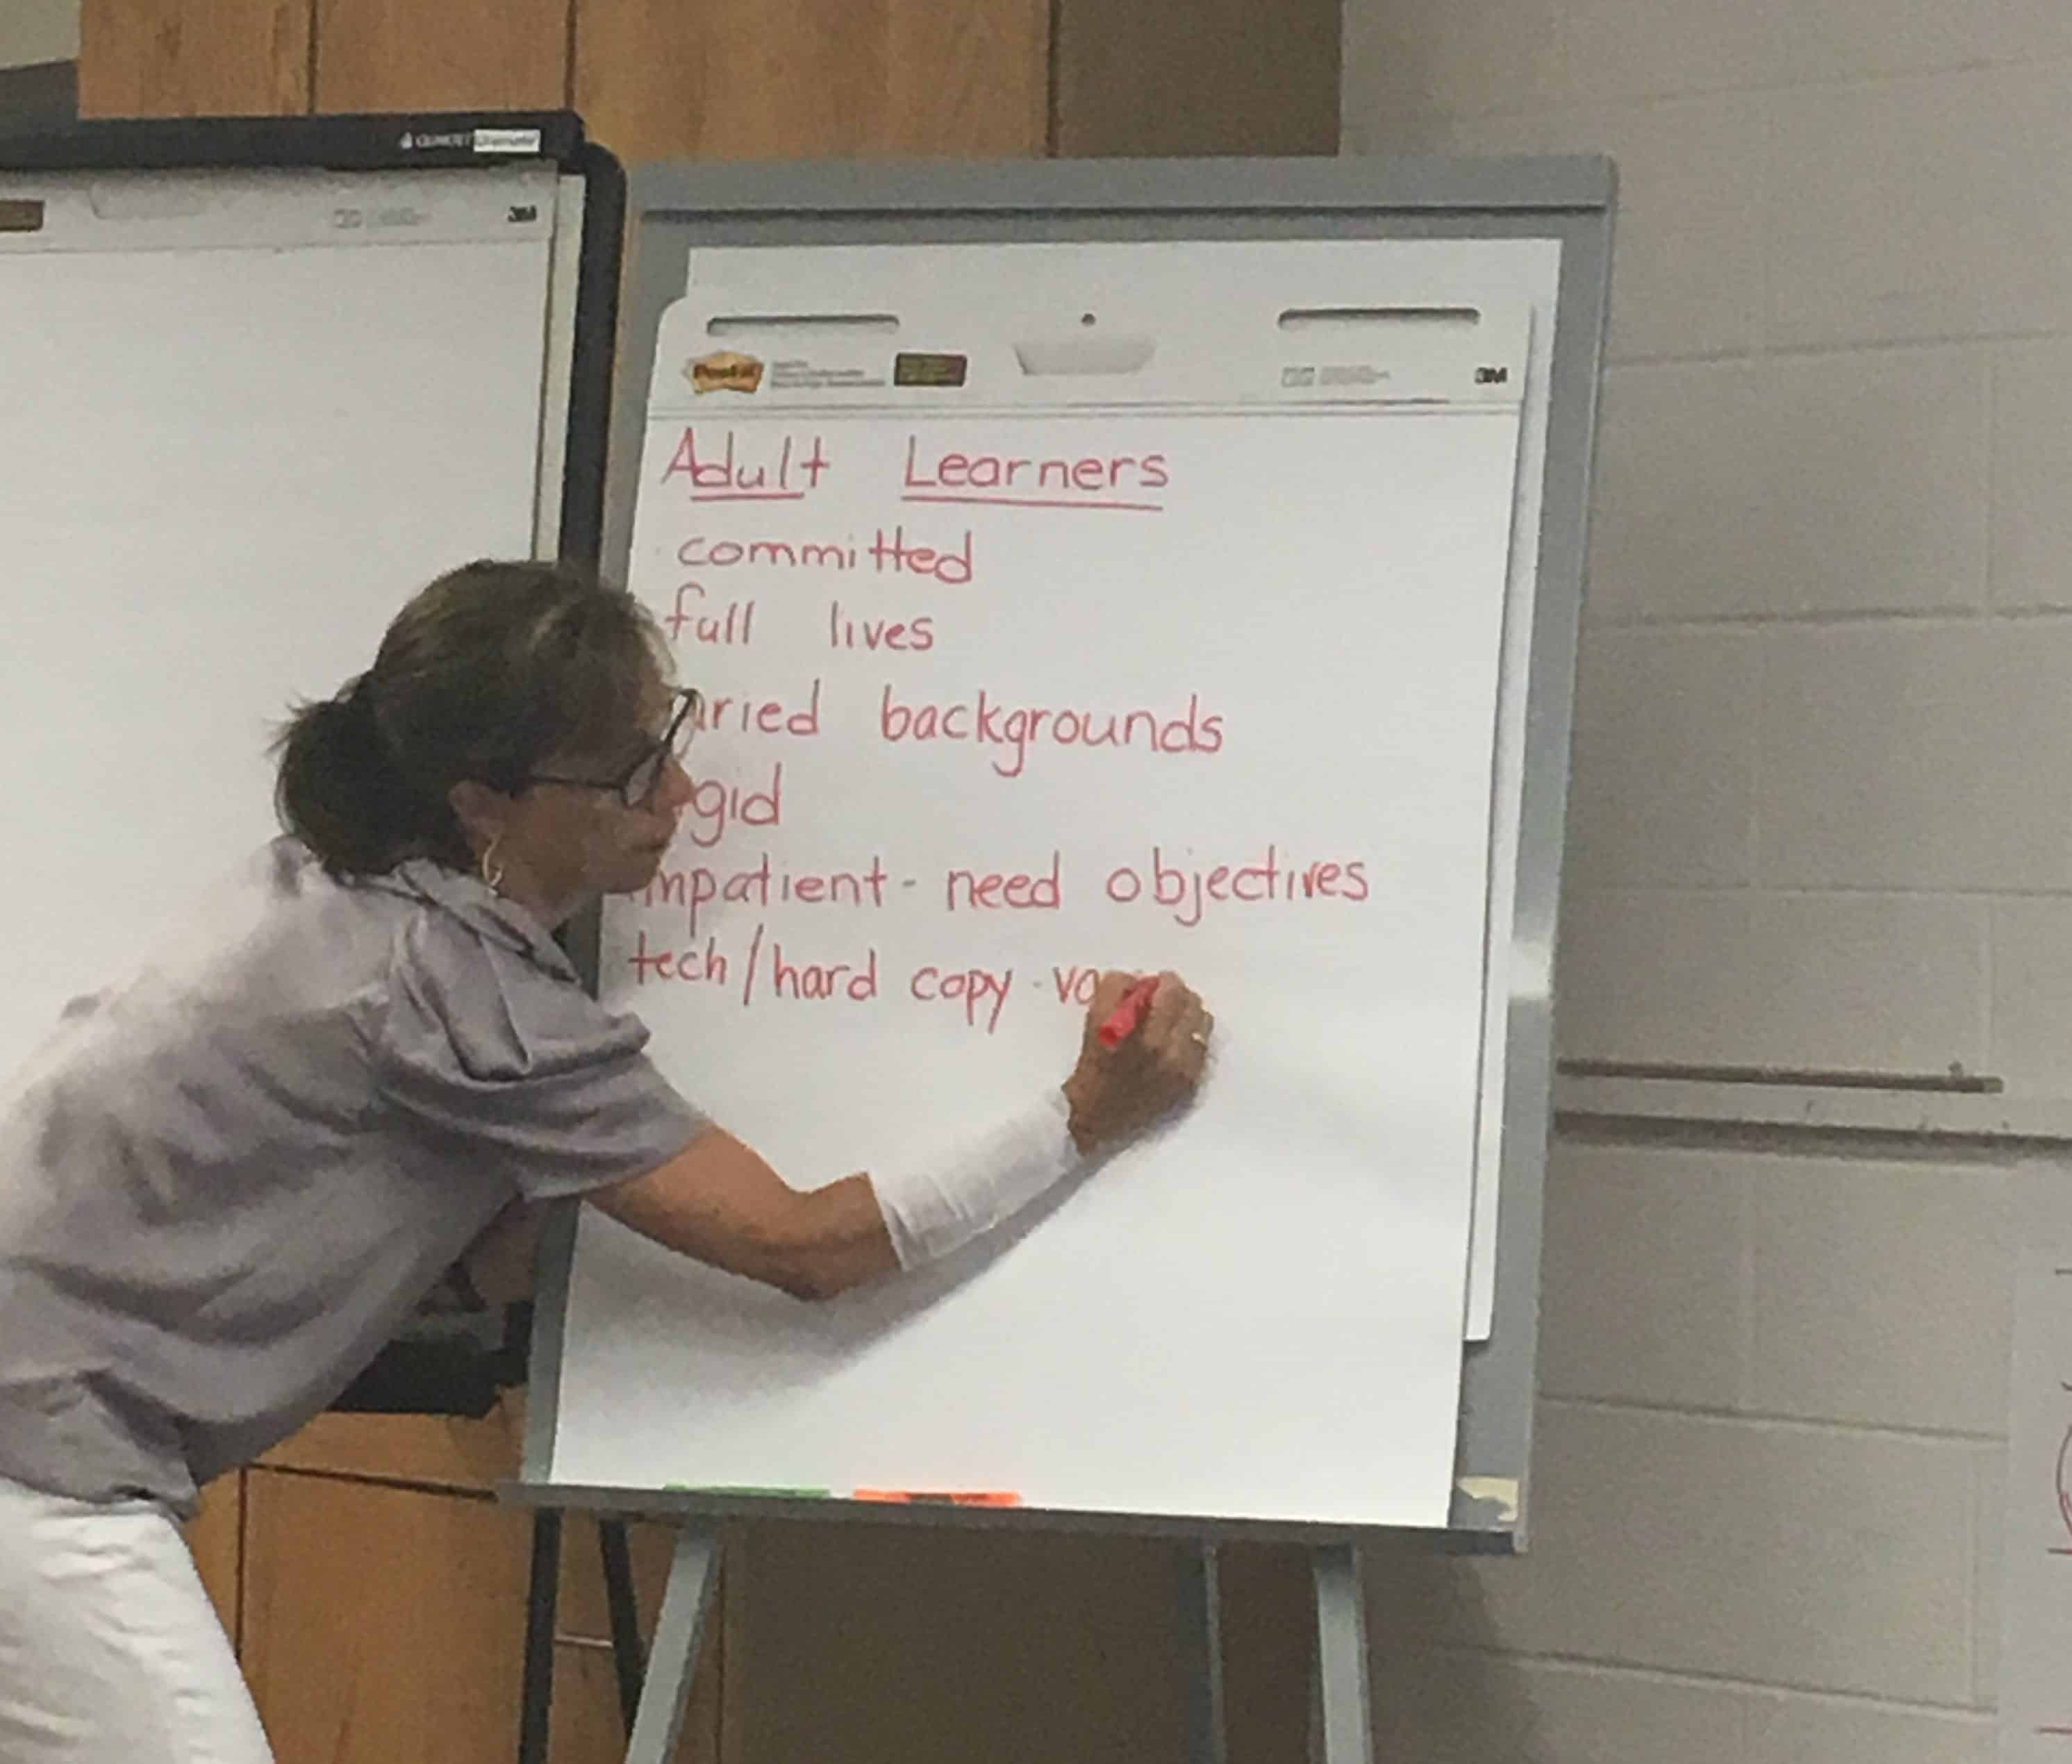 3M
Post-it
3M
Adult Learners
committed
full lives
aried backgrounds
gid
mpatient - need objectives
tech/hard copy - va